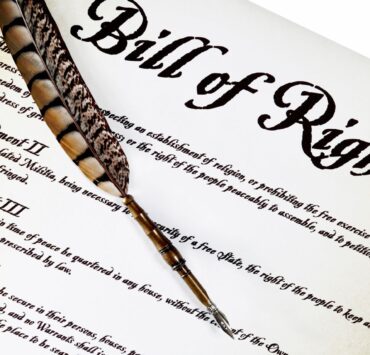 Bill of Righ
pecting an establishment of religion, or prohibiting the free exercise
eedom of or the right of the people peaceably to assemble, and to petition
dress of gr
ment II
lated Militia, being necessary to curity of a free State, the right of the people to keep a
ringed.
III
in time of peace be quartered in any house, without the of the Ow
prescribed by law.
be secure in their persons, houses, p
and no Warrants shall i
the place to be sear